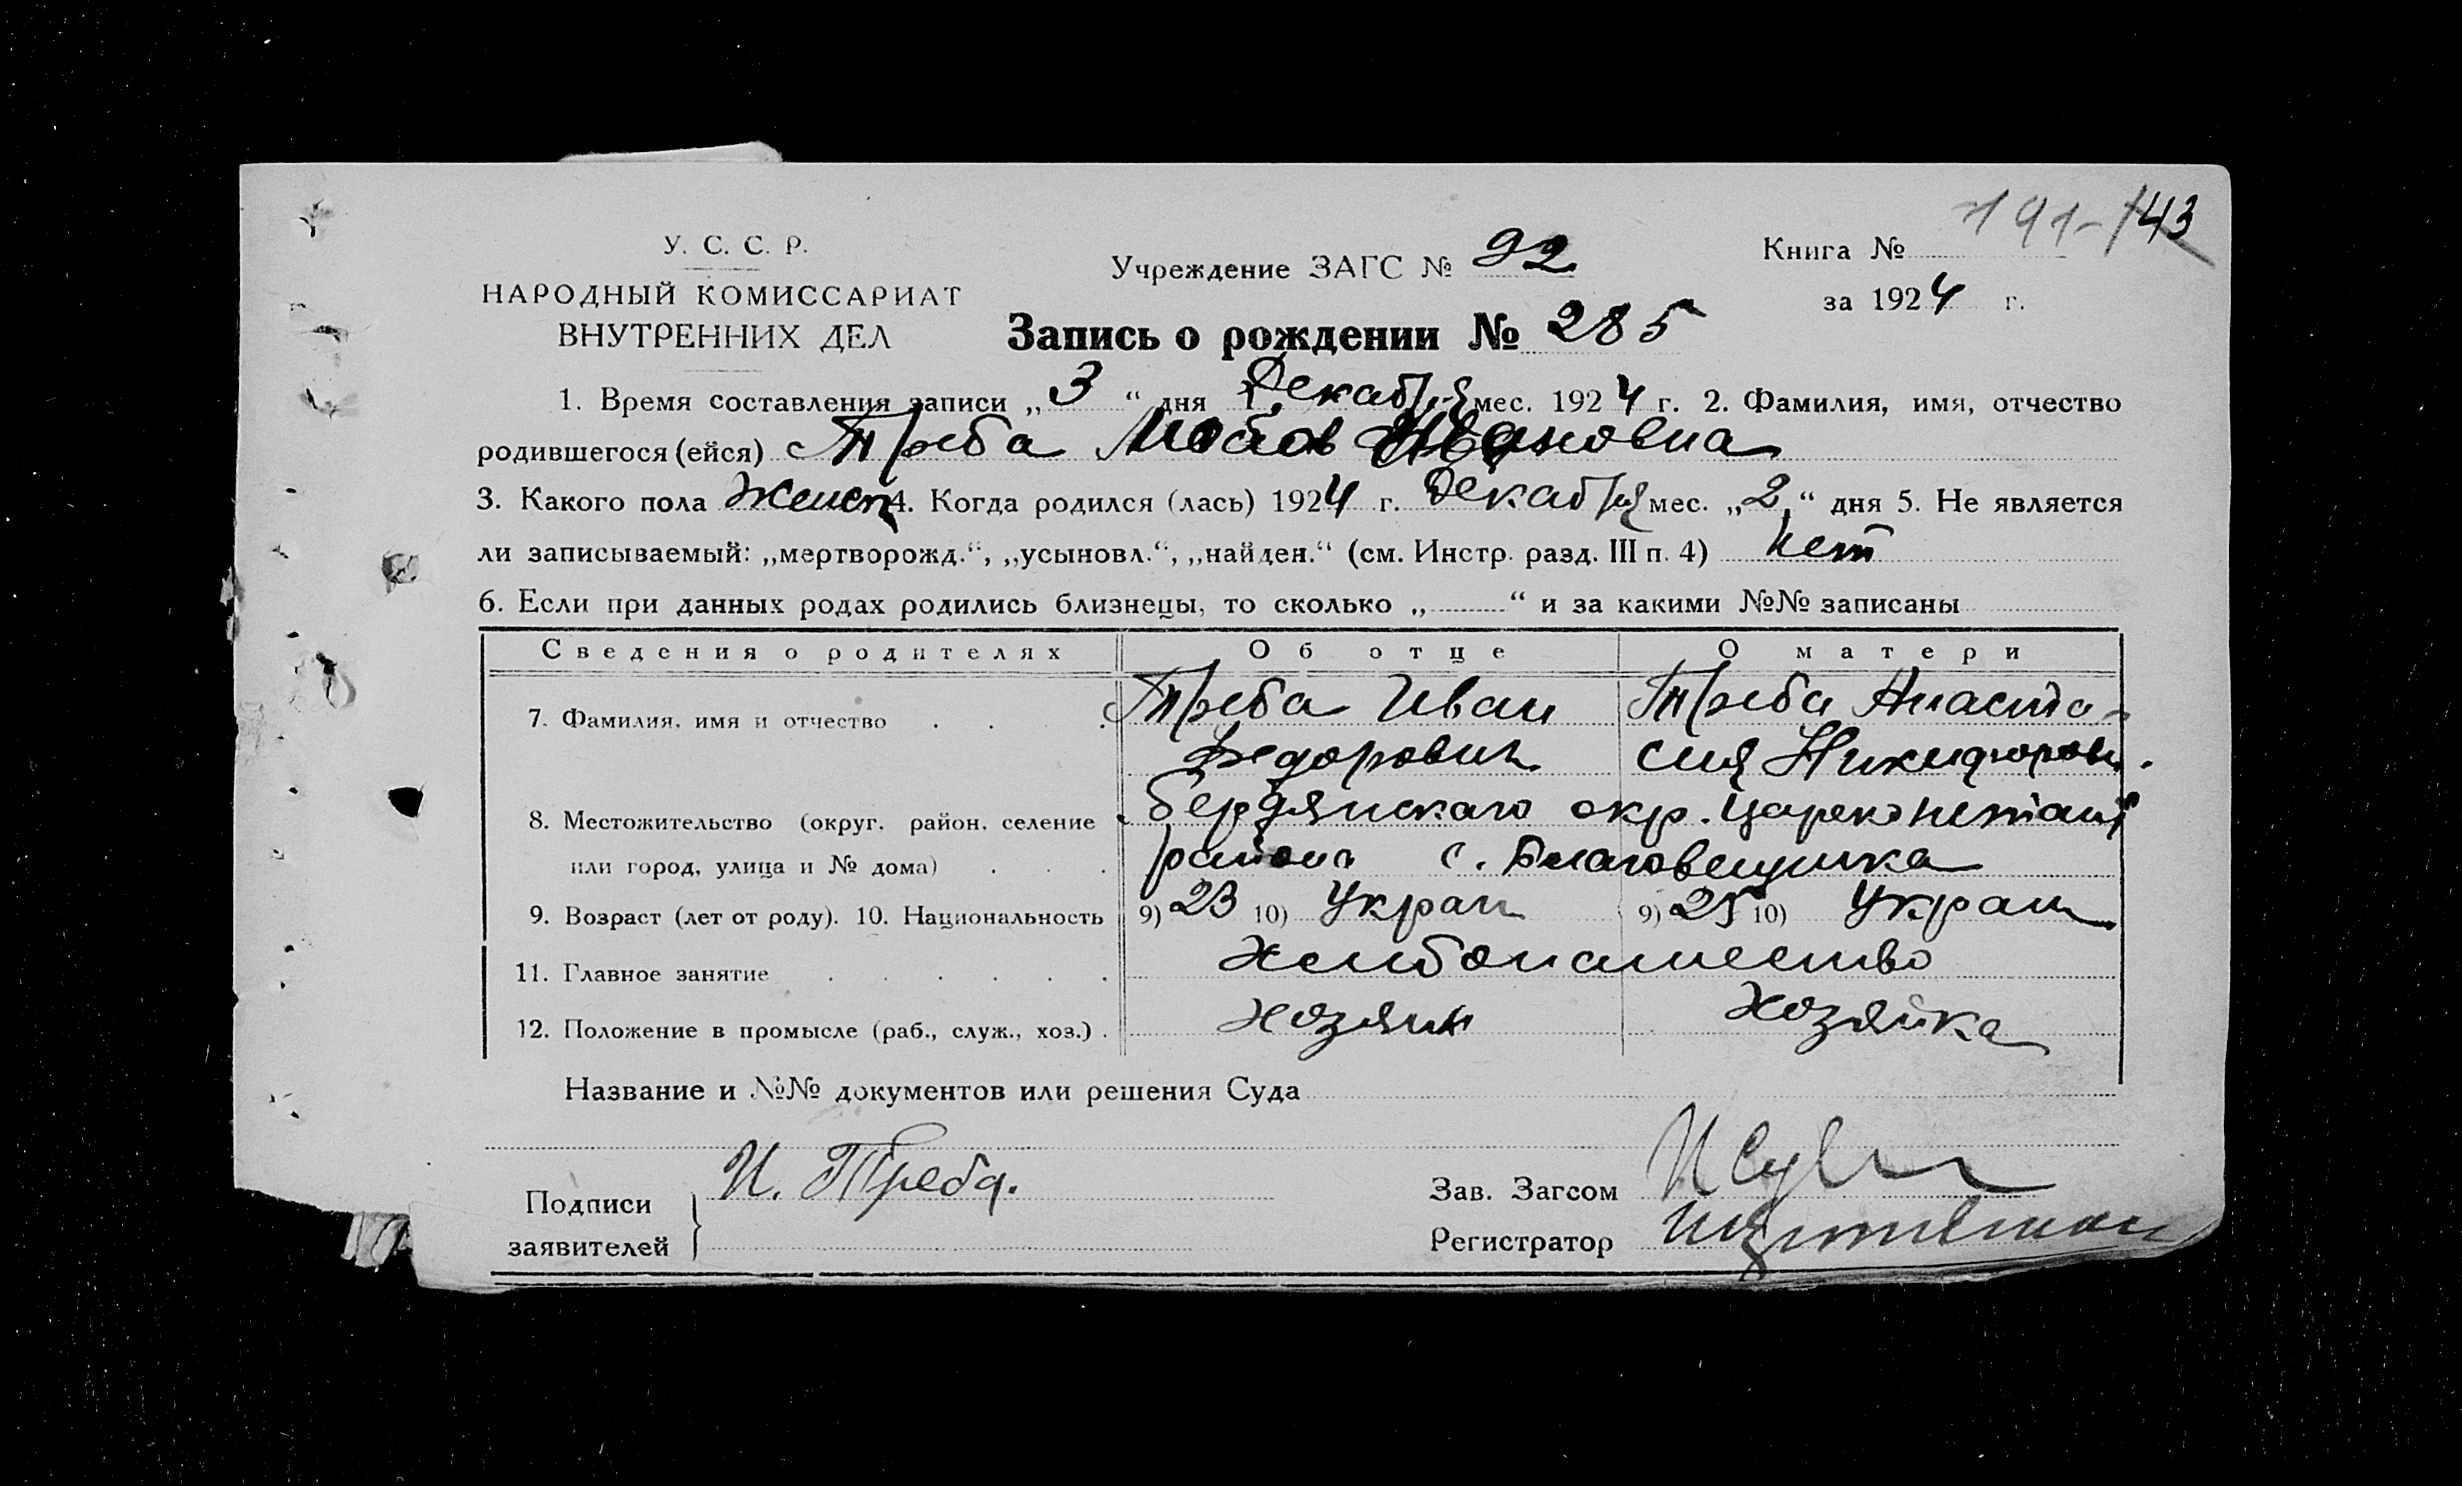 191-/43
У. С. С. Р.
НАРОДНЫЙ КОМИССАРИАТ
ВНУТРЕННИХ ДЕЛ
Учреждение ЗАГС № 92
Книга №
за 1924 г.
Запись о рождении № 285
1. Время составления записи „3“ дня Декабря мес. 1924 г. 2. Фамилия, имя, отчество
родившегося (ейся) Треба Любов Ивановна
3. Какого пола Женск 4. Когда родился (лась) 1924 г. Декабря мес. „2“ дня 5. Не является
ли записываемый: „мертворожд.“, „усыновл.“, „найден.“ (см. Инстр. разд. III п. 4) нет
6. Если при данных родах родились близнецы, то сколько „ “ и за какими №№ записаны
Сведения о родителях Об отце О матери
7. Фамилия, имя и отчество Треба Иван Треба Анаста-
Федорович сия Никифоровн.
8. Местожительство (округ, район, селение Бердянскаго окр. Цареконстант
или город, улица и № дома) района с. Благовещинка
9. Возраст (лет от роду). 10. Национальность 9) 23 10) Украин 9) 25 10) Украин
11. Главное занятие Хлебопашество
12. Положение в промысле (раб., служ., хоз.) Хозяин Хозяйка
Название и №№ документов или решения Суда
Подписи И. Треба.
заявителей
Зав. Загсом
Регистратор